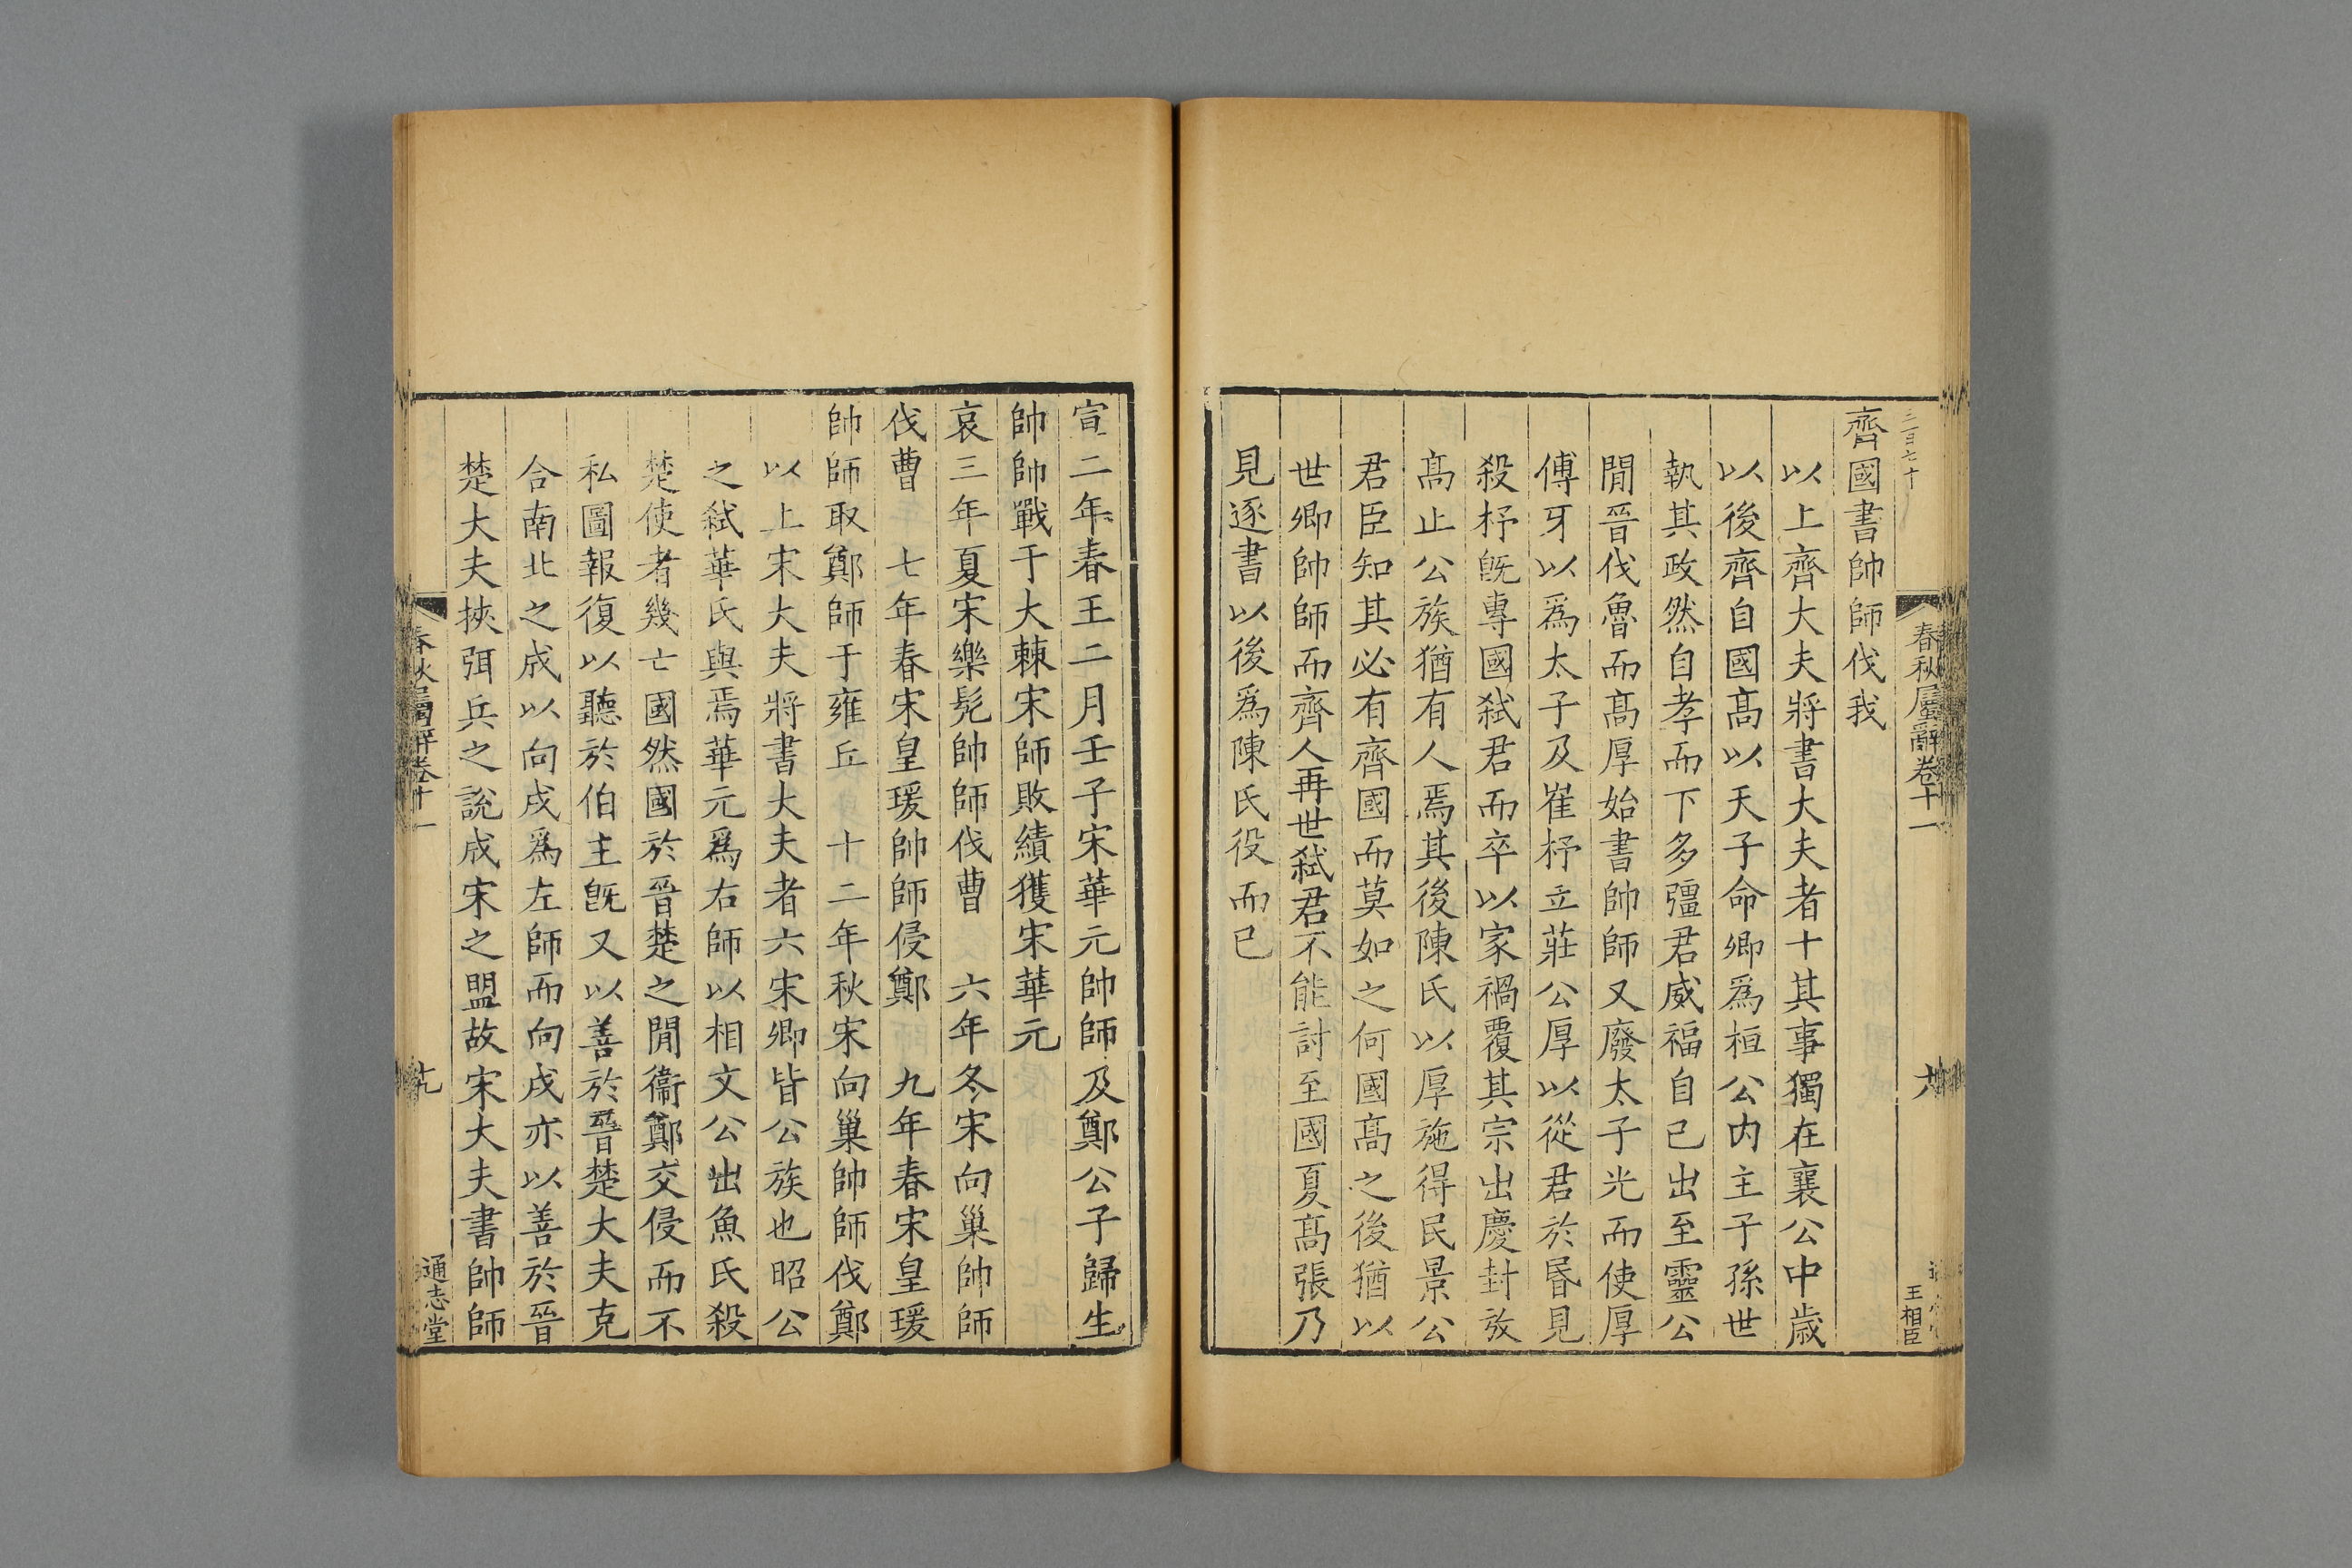 春秋屬辭卷十一
王相臣
齊國書帥師伐我
以上齊大夫將書大夫者十其事獨在襄公中歲
以後齊自國髙以天子命卿爲桓公內主子孫世
執其政然自孝而下多彊君威福自已出至靈公
閒晉伐魯而髙厚始書帥師又廢太子光而使厚
傅牙以爲太子及崔杼立莊公厚以從君於昬見
殺杼旣專國弑君而卒以家禍覆其宗出慶封放
髙止公族猶有人焉其後陳氏以厚施得民景公
君臣知其必有齊國而莫如之何國髙之後猶以
世卿帥師而齊人再世弑君不能討至國夏髙張乃
見逐書以後爲陳氏役而已
宣二年春王二月壬子宋華元帥師及鄭公子歸生
帥師戰于大棘宋師敗績獲宋華元
哀三年夏宋樂髠帥師伐曹　六年冬宋向巢帥師
伐曹　七年春宋皇瑗帥師侵鄭　九年春宋皇瑗
帥師取鄭師于雍丘　十二年秋宋向巢帥師伐鄭
以上宋大夫將書大夫者六宋卿皆公族也昭公
之弑華氏與焉華元爲右師以相文公出魚氏殺
楚使者幾亡國然國於晉楚之閒衞鄭交侵而不
私圖報復以聽於伯主旣又以善於晉楚大夫克
合南北之成以向戌爲左師而向戌亦以善於晉
楚大夫挾弭兵之說成宋之盟故宋大夫書帥師
春秋屬辭卷十一
十九
通志堂